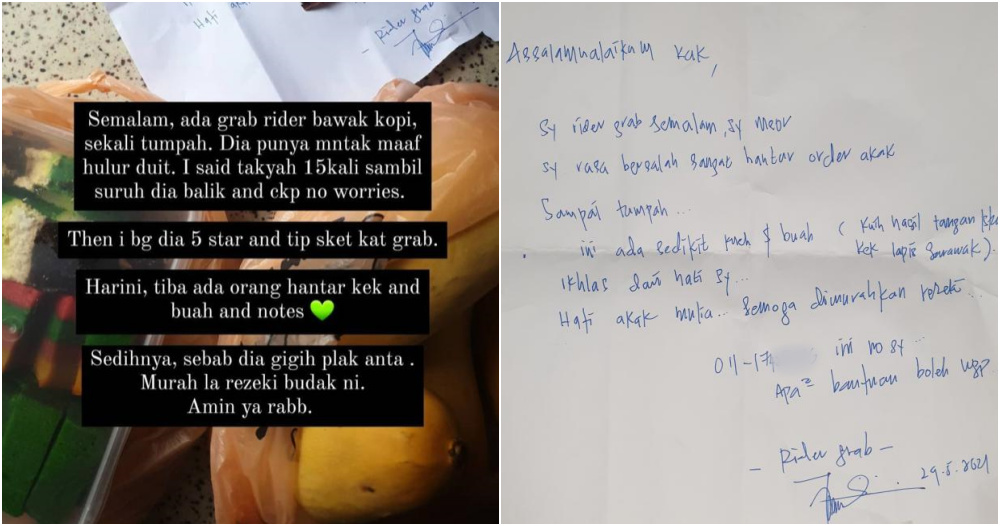 Hati
- Rider grab -
Semalam, ada grab rider bawak kopi,
sekali tumpah. Dia punya mntak maaf
hulur duit. I said takyah 15kali sambil
suruh dia balik and ckp no worries.
Then i bg dia 5 star and tip sket kat grab.
Harini, tiba ada orang hantar kek and
buah and notes 💚
Sedihnya, sebab dia gigih plak anta .
Murah la rezeki budak ni.
Amin ya rabb.
Assalamualaikum kak,
sy rider grab semalam, sy meor
sy rasa bersalah sangat hantar order akak
Sampai tumpah...
ini ada sedikit kueh & buah ( kuih hasil tangan
kek lapis Sarawak).
Ikhlas dari hati sy...
Hati akak mulia... semoga dimurahkan rezeki...
011-17 ini no sy...
Apa² bantuan boleh wsp
- Rider grab -
29.5.2021